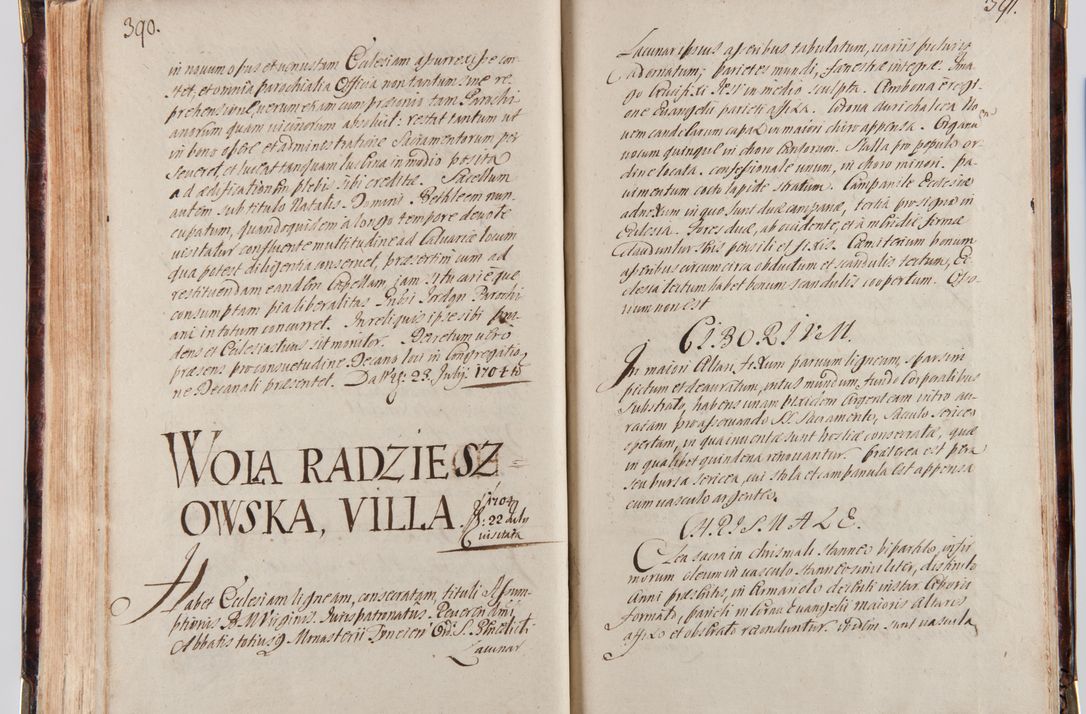 390.
in novum opus et venustam Ecclesiam assurrexisse con
stet, et omnia parochialia Officia non tantum sine re
prehensione, verum etiam cum præconio tam Parochi
anorum quam vicinorum absolvit: restat tantum ut
in bono opere et administratione Sacramentorum per
severet, et luceat tanquam lucerna in medio posita
ad ædificationem plebis sibi creditæ. Sacellum
autem sub titulo Natalis Domini Bethleem nun
cupatum, quandoquidem à longo tempore devote
visitatur confluente multitudine ad Calvariæ locum
qua potest diligentia conservet, præsertim cum ad
restituendam eandem Capellam, jam situ carieque
consumptam pia liberalitas Gnbri Jordan Parochi
ani in totum concurret. In reliquis ipse sibi pru
dens et Ecclesiasticus sit monitor. Decretum vero
præsens pro consvetudine Decano loci in Congregatio
ne Decanali præsentet. Datt 23. Julij 1704to
WOLA RADZIESZ
OWSKA, VILLA.
1704
D: 22 July
visitata
Habet Ecclesiam ligneam, consecratam, tituli Assum
ptionis B. M. Virginis. Juris patronatus Reverendmi
Abbatis totiusq Monasterii Tynecen Ord. S. Benedicti
Lacunar
391.
Lacunar ipsius asseribus tabulatum, variis picturis
adornatum; parietes mundi, fenestræ integræ. Ima
go Crucifixi Jesu in medio sculpta. Ambona è regi
one Evangelii parieti affixa. Corona aurichalcea no
vem candelarum capax in maiori choro appensa. Organum
vocum quinque in choro Cantorum. Scalla pro populo or
dine locata. confessionale unum, in choro minori. pa
vimentum cocto lapide stratum. Campanile Ecclesiæ
adnexum in quo sunt duæ campanæ, tertia pro signo in
Ecclesia. Fores duæ, ab occidente, et à meridie firmæ
clauduntur seris pensili et fixis. Cæmiterium bonum
asseribus circumcirca obductum et scandulis tectum, Ec
clesia tectum habet bonum scandulis coopertum. Osso
rium non est
CIBORIVM.
In maiori Altari fixum parvum ligneum, sparsim
pictum et deauratum, intus mundum, fundo Corporalibus
substrato, habens unam pixidem argenteam intro au
ratam pro asservando SS. Sacramento, Sacculo sericeo
opertam, in qua inventæ sunt hostiæ consecratæ, quæ
in qualibet quindena renovantur. Præterea est pera
seu bursa sericea, cui stola et campanula est appensa
cum vasculo argenteo.
CHRISMALE.
Olea sacra in chrismali stanneo bipartito, infir
morum oleum in vasculo stanneo similiter, distincto
anni præsentis, in Armariolo decenti instar Ciborii
formato, parieti in Cornu Evangelii maioris Altaris
affixo et obserato reconduntur. ibidem sunt vascula